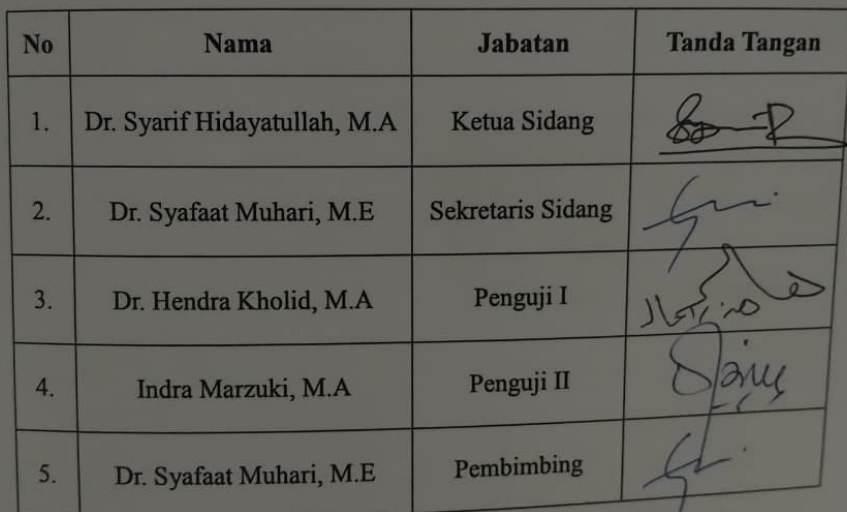 No Nama Jabatan Tanda Tangan
1. Dr. Syarif Hidayatullah, M.A Ketua Sidang
2. Dr. Syafaat Muhari, M.E Sekretaris Sidang
3. Dr. Hendra Kholid, M.A Penguji I
4. Indra Marzuki, M.A Penguji II
5. Dr. Syafaat Muhari, M.E Pembimbing